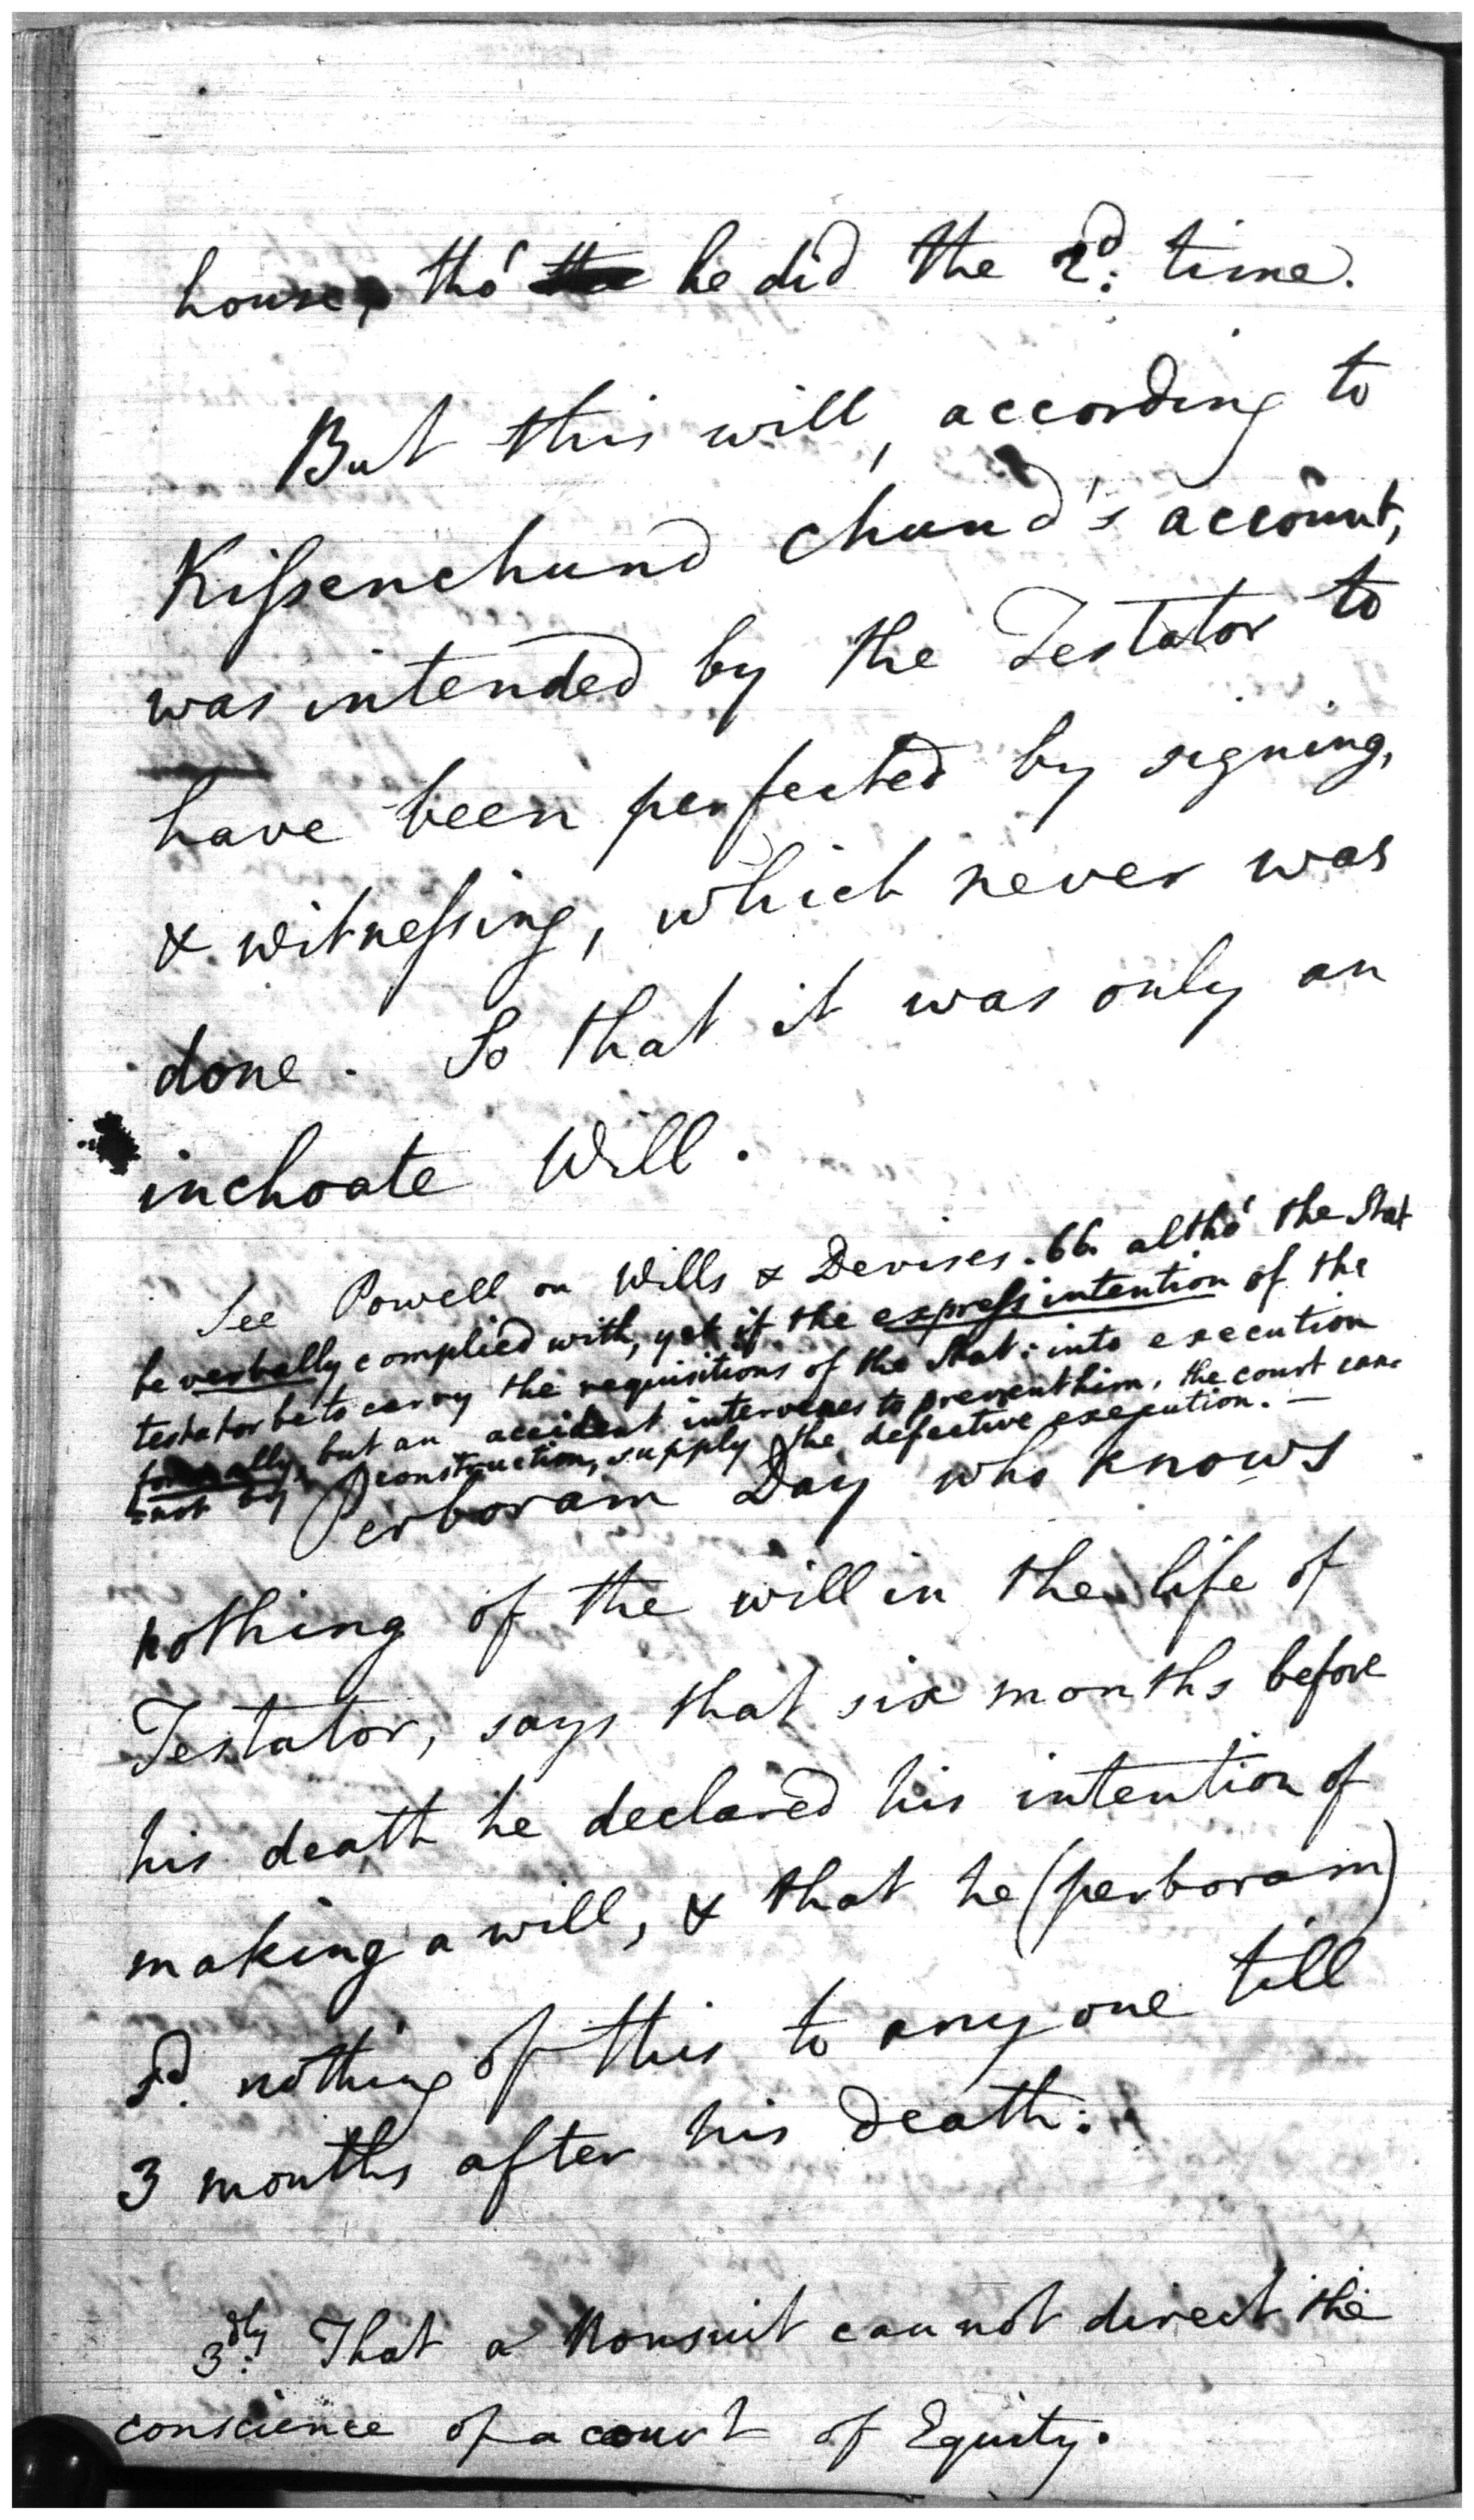 house, tho' he did the 2d: time.
But this will, according to
Kiſsenchund Chund's account,
was intended by the Testator to
have been perfected by signing,
& witneſsing, which never was
done. So that it was only an
inchoate Will.
See Powell on Wills & Devises. 66. altho' the Stat
be verbally complied with, yet if the expreſs intention of the
testator be to carry the requisitions of the Stat: into execution
formally, but an accident intervenes to prevent him, the court can=
=not by construction, supply the defective execution. —
Perboram Day who knows
nothing of the will in the life of
Testator, says that six months before
his death he declared his intention of
making a will, & that he (perboram)
sd. nothing of this to any one till
3 months after his death.
3dly: That a Nonsuit cannot direct the
conscience of a court of Equity.